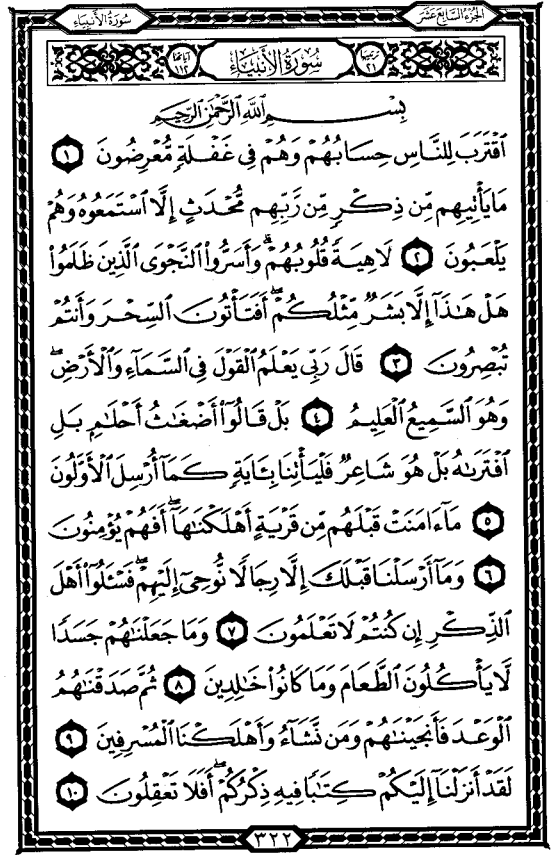 الجزء السابع عشر
سورة الأنبياء
ترتيبها ٢١ سُورَةُ الأَنبِيَاءِ آياتها ١١٢
بِسْمِ ٱللَّهِ ٱلرَّحْمَٰنِ ٱلرَّحِيمِ
ٱقْتَرَبَ لِلنَّاسِ حِسَابُهُمْ وَهُمْ فِى غَفْلَةٍ مُّعْرِضُونَ ١
مَا يَأْتِيهِم مِّن ذِكْرٍ مِّن رَّبِّهِم مُّحْدَثٍ إِلَّا ٱسْتَمَعُوهُ وَهُمْ
يَلْعَبُونَ ٢ لَاهِيَةً قُلُوبُهُمْ ۗ وَأَسَرُّوا۟ ٱلنَّجْوَى ٱلَّذِينَ ظَلَمُوا۟
هَلْ هَٰذَآ إِلَّا بَشَرٌ مِّثْلُكُمْ ۖ أَفَتَأْتُونَ ٱلسِّحْرَ وَأَنتُمْ
تُبْصِرُونَ ٣ قَالَ رَبِّى يَعْلَمُ ٱلْقَوْلَ فِى ٱلسَّمَآءِ وَٱلْأَرْضِ ۖ
وَهُوَ ٱلسَّمِيعُ ٱلْعَلِيمُ ٤ بَلْ قَالُوٓا۟ أَضْغَٰثُ أَحْلَٰمٍ بَلِ
ٱفْتَرَىٰهُ بَلْ هُوَ شَاعِرٌ فَلْيَأْتِنَا بِـَٔايَةٍ كَمَآ أُرْسِلَ ٱلْأَوَّلُونَ
٥ مَآ ءَامَنَتْ قَبْلَهُم مِّن قَرْيَةٍ أَهْلَكْنَٰهَآ ۖ أَفَهُمْ يُؤْمِنُونَ
٦ وَمَآ أَرْسَلْنَا قَبْلَكَ إِلَّا رِجَالًا نُّوحِىٓ إِلَيْهِمْ ۖ فَسْـَٔلُوٓا۟ أَهْلَ
ٱلذِّكْرِ إِن كُنتُمْ لَا تَعْلَمُونَ ٧ وَمَا جَعَلْنَٰهُمْ جَسَدًا
لَّا يَأْكُلُونَ ٱلطَّعَامَ وَمَا كَانُوا۟ خَٰلِدِينَ ٨ ثُمَّ صَدَقْنَٰهُمُ
ٱلْوَعْدَ فَأَنجَيْنَٰهُمْ وَمَن نَّشَآءُ وَأَهْلَكْنَا ٱلْمُسْرِفِينَ ٩
لَقَدْ أَنزَلْنَآ إِلَيْكُمْ كِتَٰبًا فِيهِ ذِكْرُكُمْ ۖ أَفَلَا تَعْقِلُونَ ١٠
٣٢٢